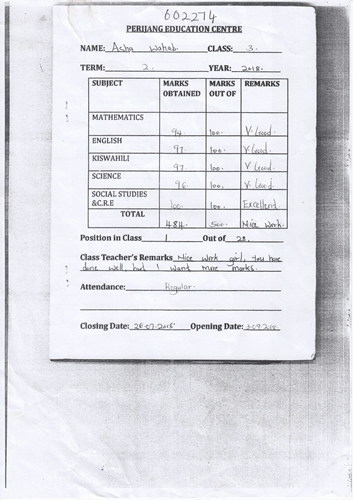 602274
PERIJANG EDUCATION CENTRE
NAME: Asha Wahab. CLASS: 3.
TERM: 2. YEAR: 2018.
SUBJECT MARKS OBTAINED MARKS OUT OF REMARKS
MATHEMATICS 94 100. V. Good
ENGLISH 97 100. V. Good
KISWAHILI 97. 100. V. Good
SCIENCE 96 100. V. Good
SOCIAL STUDIES &C.R.E 100 100. Excellent
TOTAL 484 500. Nice work.
Position in Class 1 Out of 28.
Class Teacher's Remarks Nice work girl, you have
done well, but I want more marks.
Attendance: Regular.
Closing Date: 20-07-2018 Opening Date: